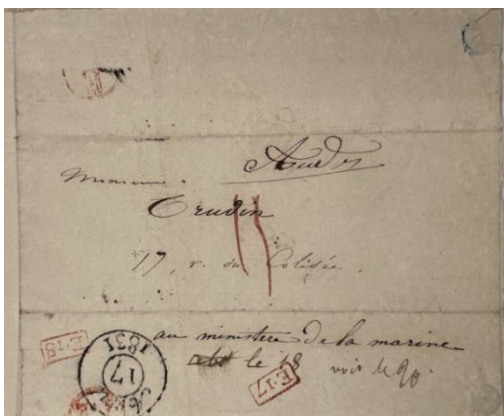 Monsieur
Trudin
17, r. du Colisée.
au ministere de la marine
le 18 voir le 20
E-18
1831
17
E-17